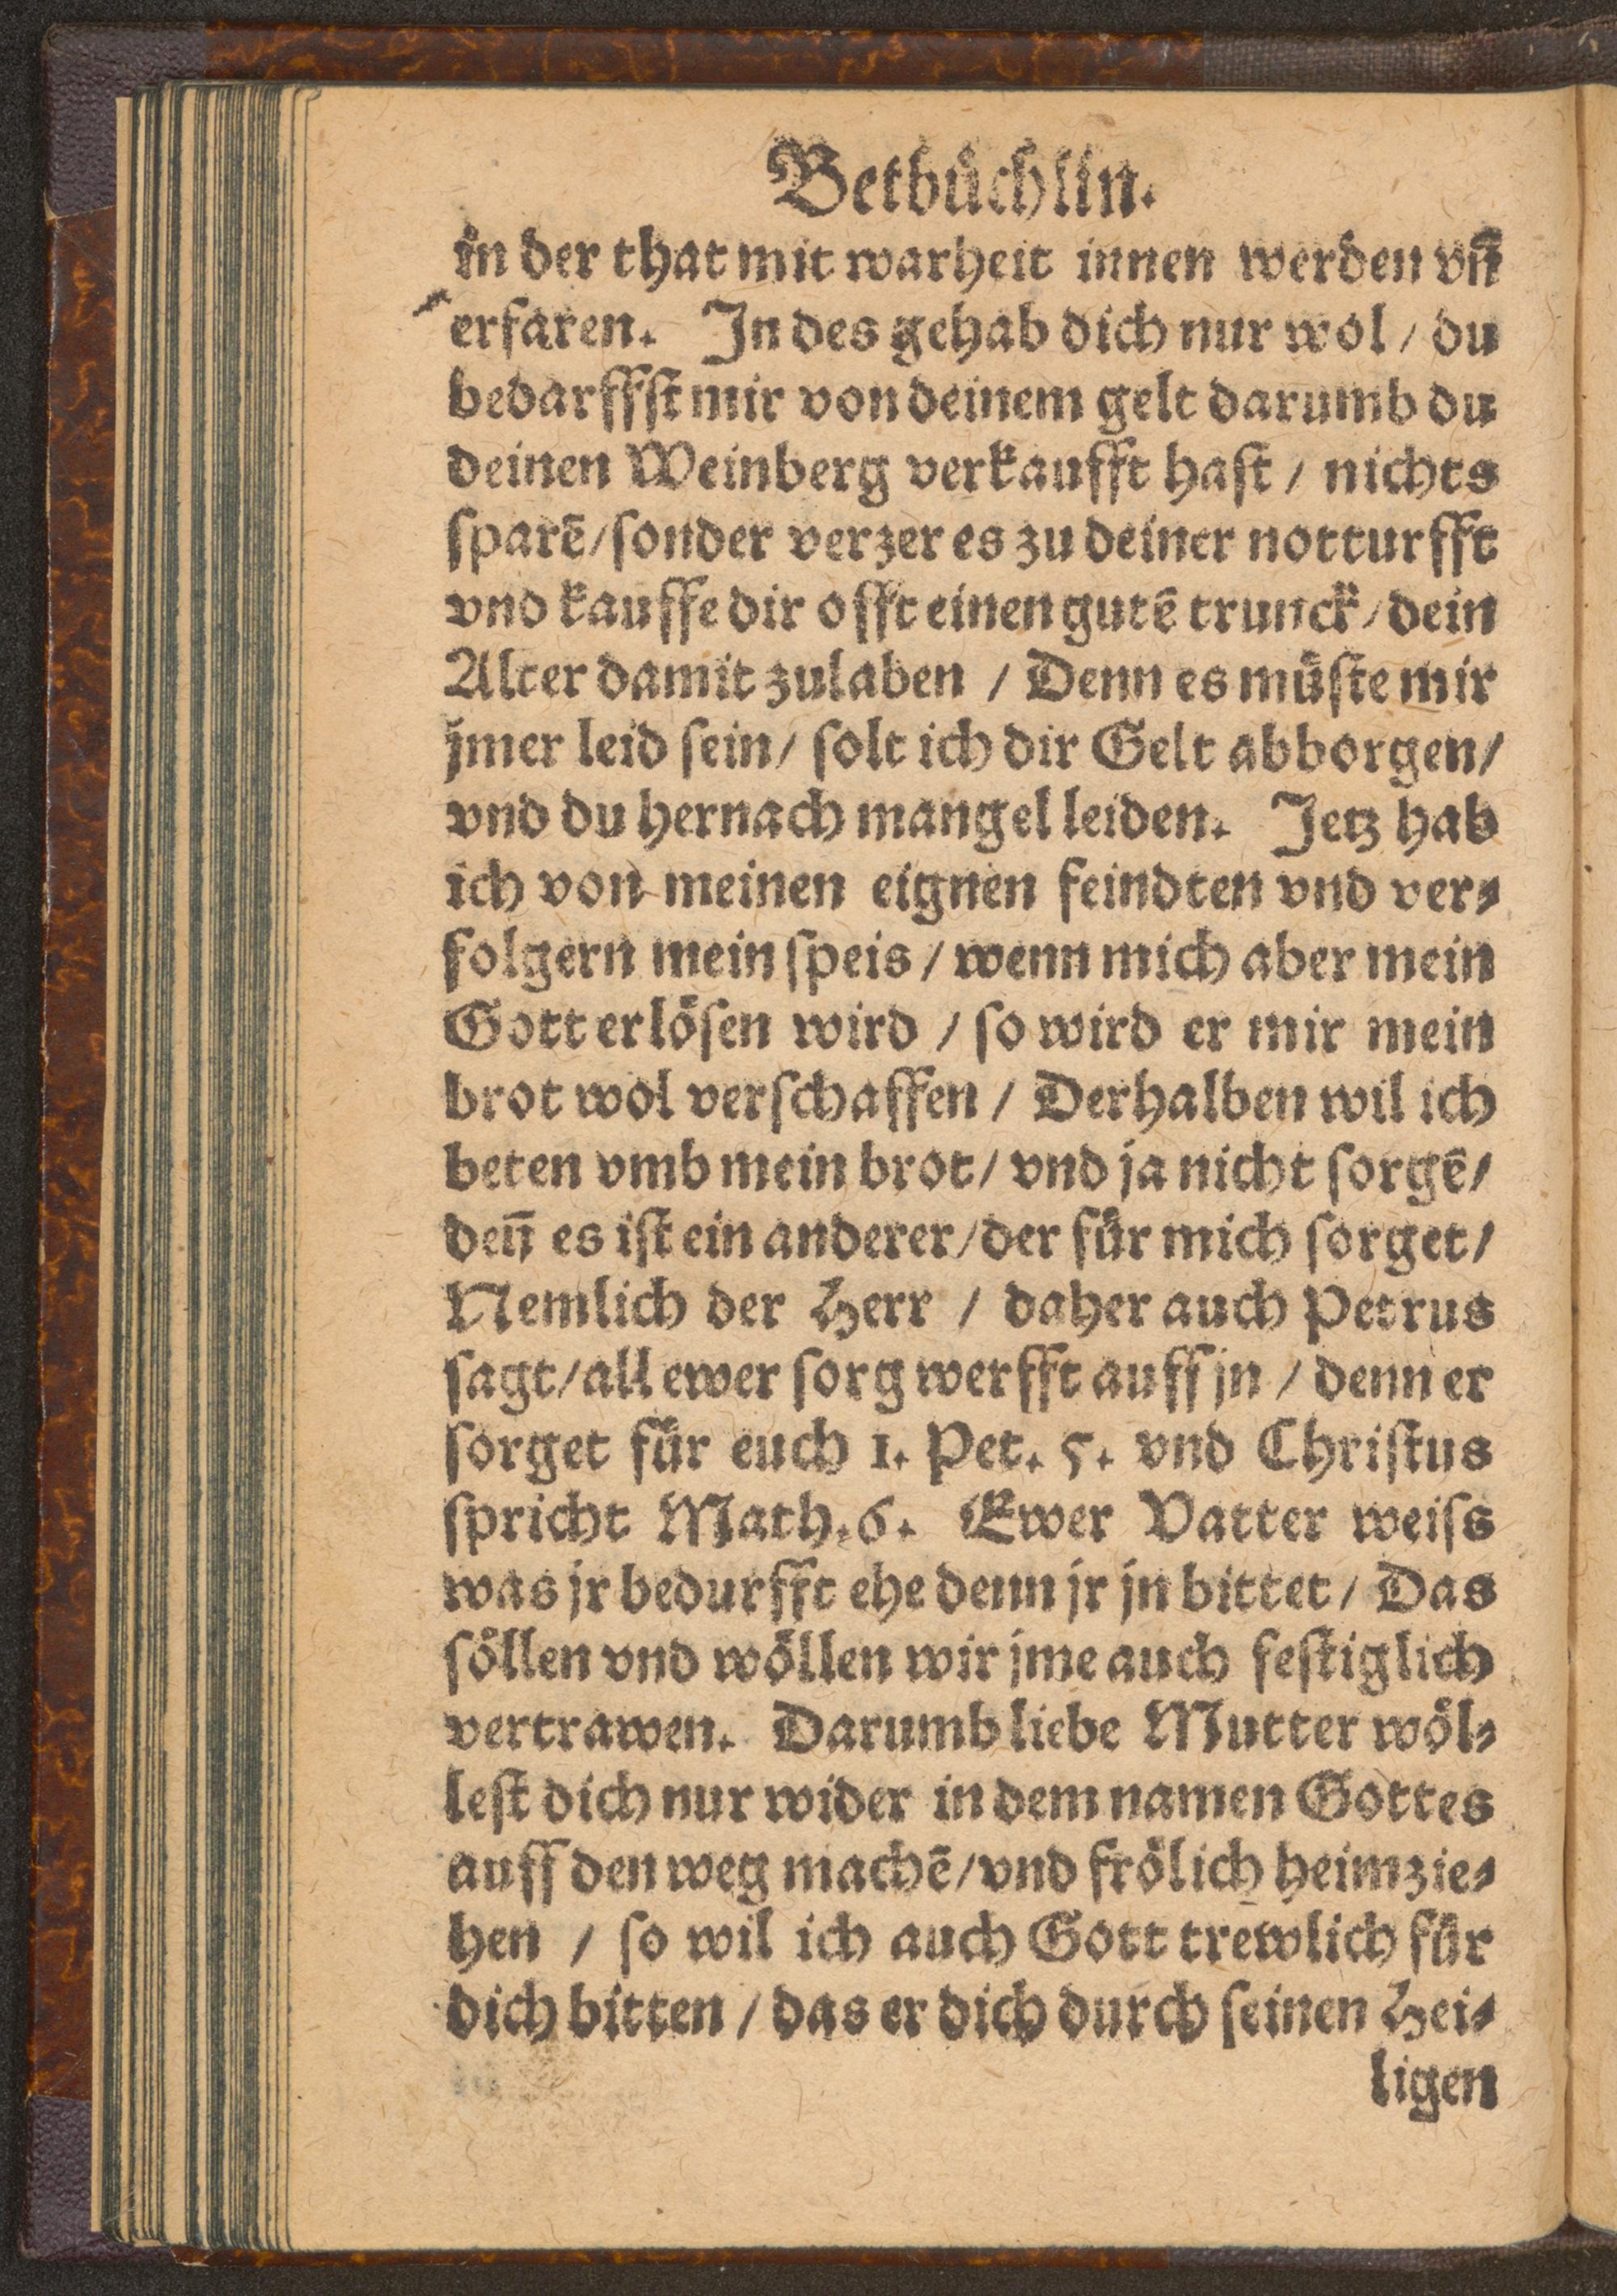 Betbuͤchlin.
in der that mit warheit innen werden vñ
erfaren. In des gehab dich nur wol / du
bedarffſt mir von deinem gelt darumb du
deinen Weinberg verkaufft haſt / nichts
ſparē/ſonder verzer es zu deiner notturfft
vnd kauffe dir offt einen gutē trunck/dein
Alter damit zulaben / Denn es muͤſte mir
jm̄er leid ſein/ ſolt ich dir Gelt abborgen/
vnd du hernach mangel leiden. Jetz hab
ich von meinen eignen feindten vnd ver⸗
folgern mein ſpeis / wenn mich aber mein
Gott erloͤſen wird / ſo wird er mir mein
brot wol verſchaffen / Derhalben wil ich
beten vmb mein brot/ vnd ja nicht ſorgē/
den̄ es iſt ein anderer/der fuͤr mich ſorget/
Nemlich der Herr / daher auch Petrus
ſagt/all ewer ſorg werfft auff jn / denn er
ſorget fuͤr euch 1. Pet. 5. vnd Chriſtus
ſpricht Math.6. Ewer Vatter weiſs
was jr bedurfft ehe denn jr jn bittet/ Das
ſoͤllen vnd woͤllen wir jme auch feſtiglich
vertrawen. Darumb liebe Mutter woͤl⸗
leſt dich nur wider in dem namen Gottes
auff den weg machē/vnd froͤlich heimzie⸗
hen / ſo wil ich auch Gott trewlich fuͤr
dich bitten / das er dich durch ſeinen Hei⸗
ligen